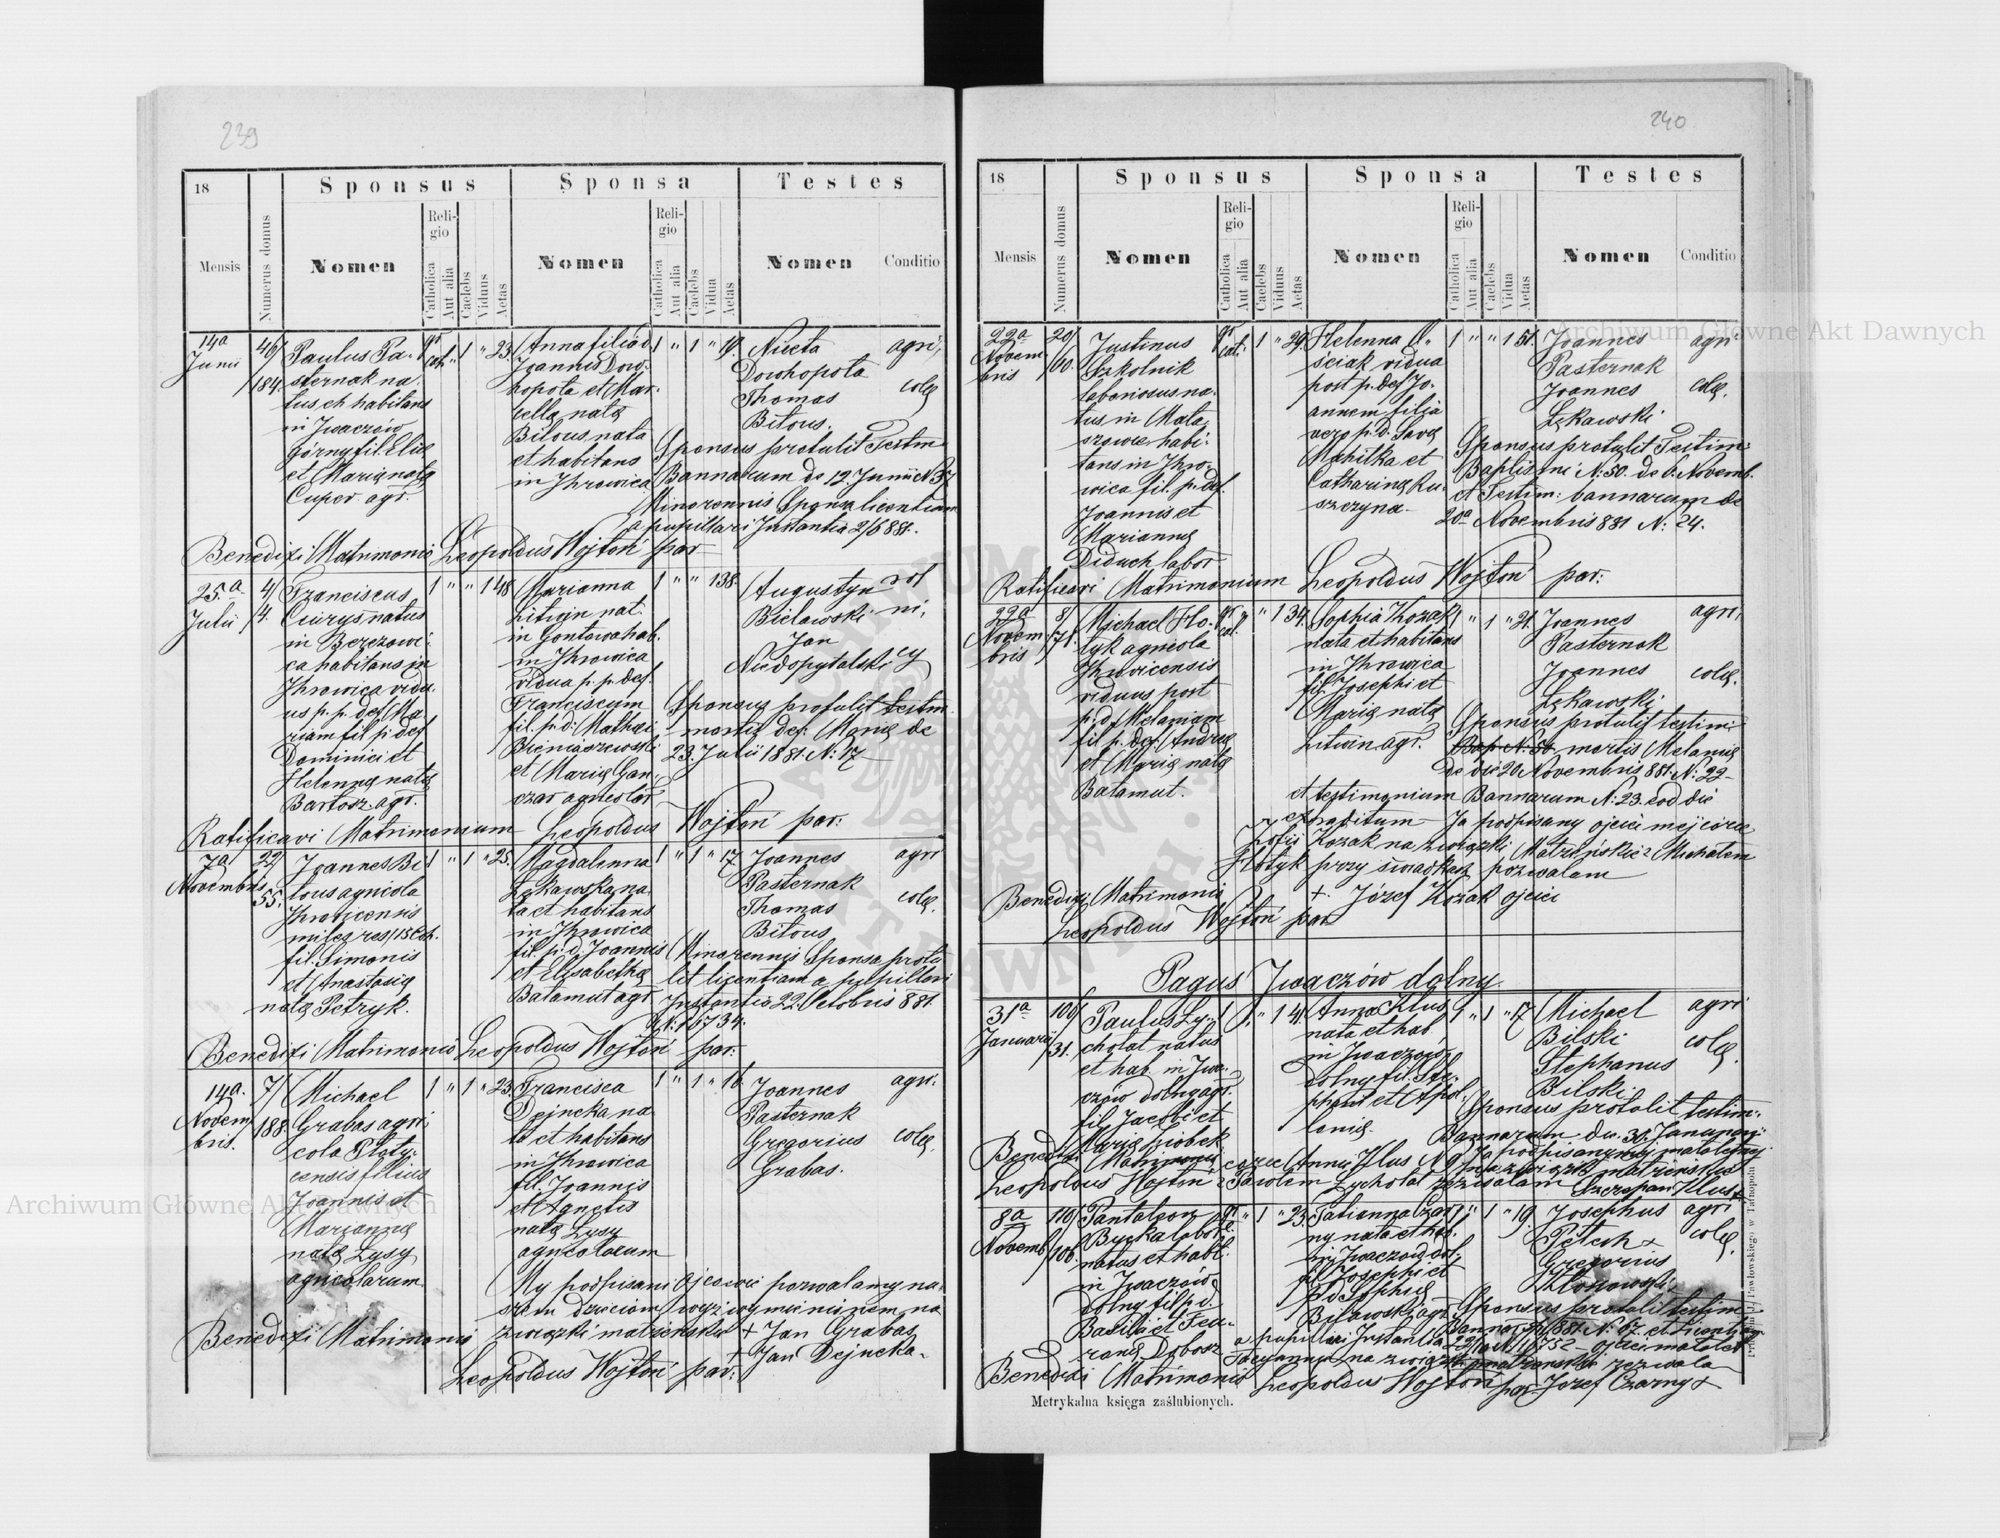 239
18
Sponsus
Sponsa
Testes
Mensis
Numerus domus
Nomen
Religio
Catholica
Aut alia
Caelebs
Viduus
Aetas
Nomen
Religio
Catholica
Aut alia
Caelebs
Vidua
Aetas
Nomen
Conditio
14a
Junii
46/
184.
Paulus Pa-
sternak na-
tus et habitans
in Jwaczów
górny fil. Eliæ
et Mariæ natæ
Cuper agr.
gr
cat.
1 " 23.
Anna filia
Joannis Dow-
hopota et Mar-
cella natæ
Bilous nata
et habitans
in Jhrowica
1 " 1 " 19.
Niceta
Dowhopota
Thomas
Bitous.
agri,
colæ
Sponsus protulit Testim
Bannarum do 12. Junii N 37
Minorennis Sponsa licentiam
a pupillari Justantia 2/6 881.
Benedixi Matrimonio Leopoldus Wojtoń par
25.a
Julii
4/
4.
Franciscus
Ciurys natus
in Berezowi-
ca habitans in
Jhrowica vidu-
us p. p. def Ma-
riam fil. p. def
Dominici et
Helenæ natæ
Bartosz agr.
1 " " 1 48
Marianna
Litwin nat.
in Gontowa hab.
in Jhrowica
vidua p. p. def.
Franciscum
fil. p. d: Mathæi
Bieniaszewski
et Mariæ Gon-
czar agricolar
1 " " 1 38.
Augustyn
Bielawski
Jan
Niedopytalski
rol
ni,
cy
Sponsus protulit testim
mortis def: Mariæ de
23. Julii 1881. N: 17
Ratificavi Matrimonium Leopoldus Wojtoń par:
7a
Novembris
22/
55.
Joannes Bi-
lous agricola
Jhrowicensis
miles res/15 Bat.
fil. Simonis
et Anastasiæ
natæ Petryk.
1 " 1 " 25.
Magdalenna
Łękawska na-
ta et habitans
in Jhrowica
fil. p. d. Joannis
et Elisabethæ
Batamut agr.
1 " 1 " 17
Joannes
Pasternak
Thomas
Bitous
agri
colæ.
Minorennis Sponsa protu-
lit licentiam a pupillari
Justantia 22. Octobris 881.
N: 16734.
Benedixi Matrimonio Leopoldus Wojtoń par:
14a.
Novem
bris.
7/
188.
Michael
Grabas agri-
cola Płoty-
censis filius
Joannis et
Mariannæ
natæ Łysy
agricolarum
1 " 1 " 23.
Francisca
Dejneka na-
ta et habitans
in Jhrowica
fil. Joannis
et Agnetis
natæ Łysy
agricolarum
1 " 1 " 16.
Joannes
Pasternak
Gregorius
Grabas.
agri.
colæ
My podpisani ojcowie pozwalamy na-
szem dzieciom wyżwymienionem na
związki małżeńskie + Jan Grabas
+ Jan Dejneka.
Benedixi Matrimonio
Leopoldus Wojtoń par:
240
18
Sponsus
Sponsa
Testes
Mensis
Numerus domus
Nomen
Religio
Catholica
Aut alia
Caelebs
Viduus
Aetas
Nomen
Religio
Catholica
Aut alia
Caelebs
Vidua
Aetas
Nomen
Conditio
22a
Novem
bris
20/
60.
Justinus
Szkolnik
laboriosus na-
tus in Mata-
szowce habi-
tans in Jhro-
wica fil. p. def.
Joannis et
Mariannæ
Diduch labor
gr
cat.
1 " 29.
Helenna
ściak vidua
post p. def Jo-
annem filia
vero p. d. Savæ
Mahitka et
Catharinæ Ru-
szczyna.
1 " " 1 51.
Joannes
Pasternak
Joannes
Łękawski
agri
colæ.
Sponsus protulit Testim:
Baptismi N: 50. de 6. Novemb.
et Testim: bannarum de
20a Novembris 881 N: 24.
Ratificavi Matrimonium Leopoldus Wojtoń par:
22a
Novem
bris
8/
71.
Michael Ho-
tyk agricola
Jhrowicensis
viduus post
p. d Melaniam
fil p. def. Andreæ
et Mariæ natæ
Batamut.
gr
cat.
" 1 34.
Sophia Kozak
nata et habitans
in Jhrowica
fil. Josephi et
Mariæ natæ
Litwin agr.
1 " 1 " 21.
Joannes
Pasternak
Joannes
Łękawski
agri,
colæ.
Sponsus protulit testim:
Bap. N: 50. mortis Melaniæ
de die 20 Novembris 881. N: 22
et testimonium Bannarum N: 23. eod die
exhraditum Ja podpisany ojciec mej córce
Zofii Kozak na związki Matżeńskie z Michałem
Hotyk przy świadkach pozwalam
+ Józef Kozak ojciec
Benedixi Matrimonio
Leopoldus Wojtoń par
Pagus Jwaczów dolny
31a
Januarii
106/
31.
Paulus Ły-
chołat natus
et hab. in Jwa-
czów dolny agr.
fil Jacobi et
Mariæ Hiobek
1 " 1 41.
Anna Klus
nata et hab.
in Jwaczów
dolny fil. Ste-
phani et Apol-
loniæ
1 " 1 " 17
Michael
Bilski
Stephanus
Bilski
agri
colæ.
Sponsus protulit testim:
Bannarum du. 30. Januarii
N 9 Ja podpisany mej małoletniej
córce Annie Klus na związki matżenskie
z Pawłem Łychołat zezwalam Szczepan Klus +
Benedixi Matrimonio
Leopoldus Wojtoń
8a
Novemb
110/
106.
Pantaleon
Byczka labor
natus et habit.
in Jwaczów
dolny fil p. d.
Basilii et Feu-
roniæ Dobosz
gr
c.
" 1 " 23.
Tatianna Czar-
ny nata et hab.
in Jwaczów dol.
fil Josephi et
p d Sophiæ
Bilawski agr
1 " 1 " 19.
Josephus
Petech x
Gregorius
agri
colæ.
Sponsus protulit testim
Bannar. N: 67. et licentiam
a pupillari Justantia 22/10 N: 16752 ojciec małolet
Tacyannie na związki matżenskie zezwala
Benedixi Matrimonio Leopoldus Wojtoń par Józef Czarny x
Metrykalna księga zaślubionych.
Pawłowskiego w Tarnopolu
Archiwum Główne Akt Dawnych
Archiwum Główne Akt Dawnych